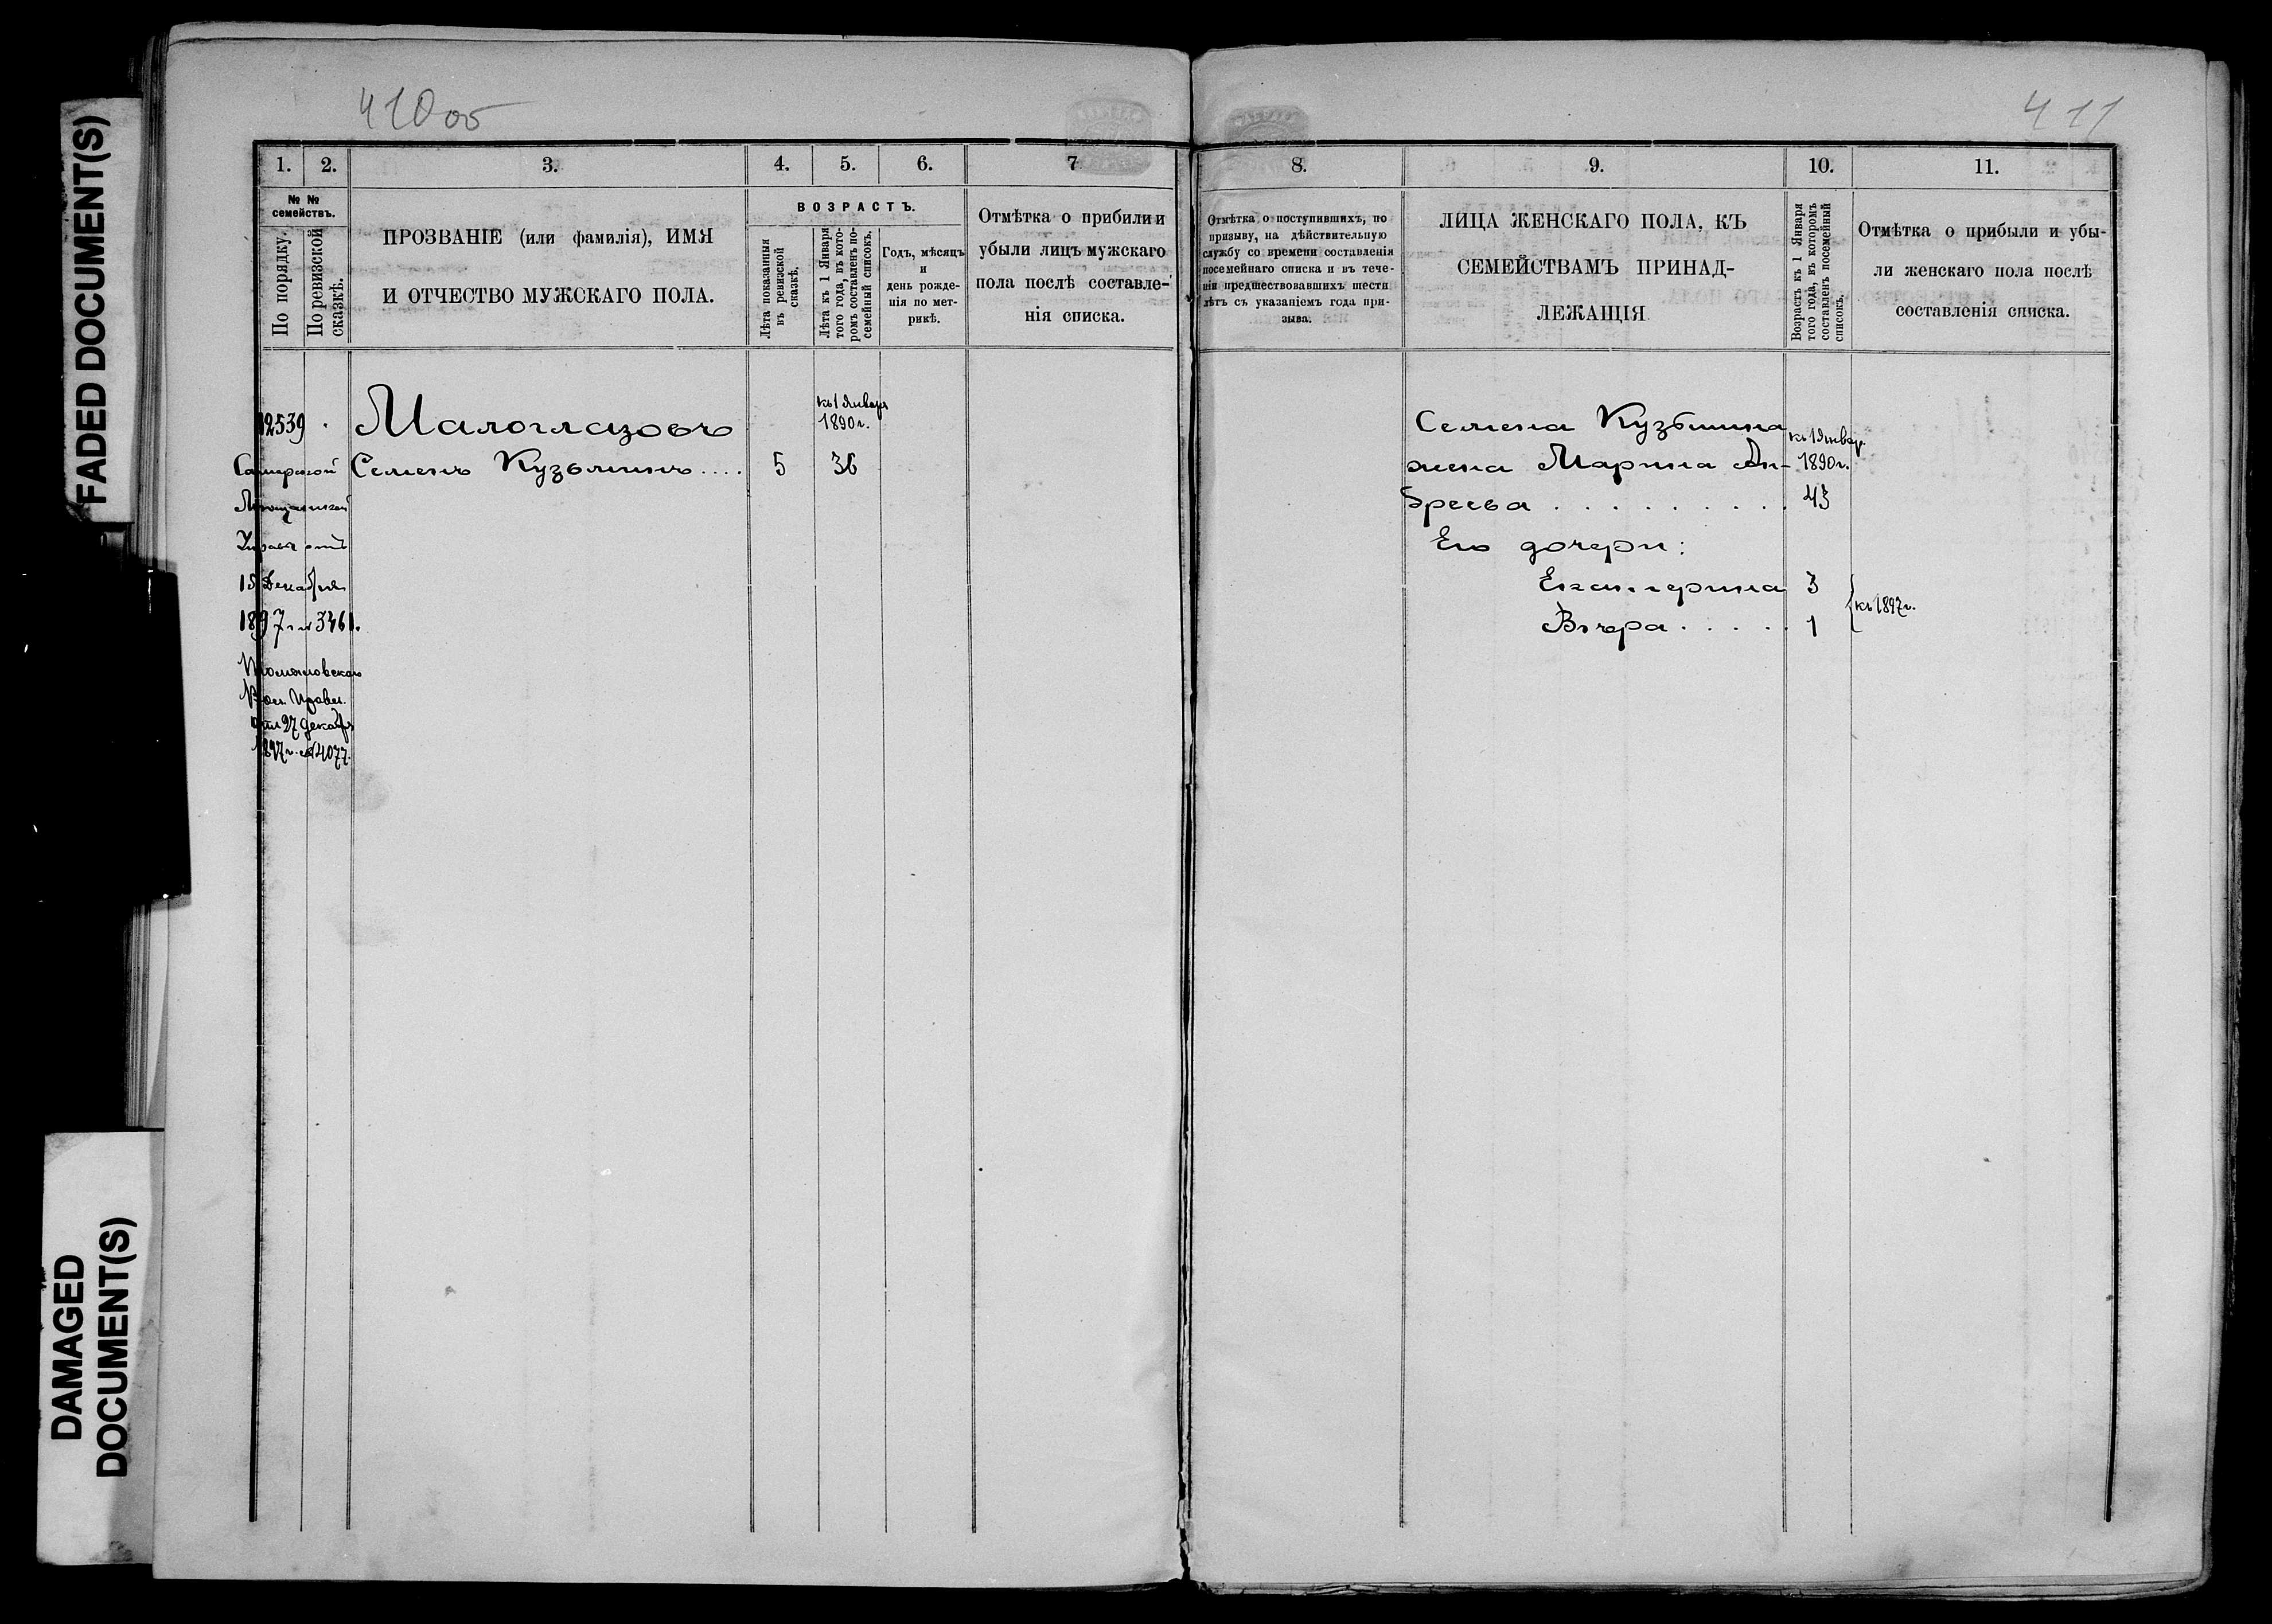 FADED DOCUMENT(S)
DAMAGED
DOCUMENT(S)
410об
1. 2. 3. 4. 5. 6. 7
№ №
семействъ.
По порядку.
По ревизской
сказкѣ.
ПРОЗВАНІЕ (или фамилія), ИМЯ
И ОТЧЕСТВО МУЖСКАГО ПОЛА.
ВОЗРАСТЪ.
Лѣта показанныя
въ ревизской
сказкѣ.
Лѣта къ 1 Января
того года, въ кото-
ромъ составленъ по-
семейный списокъ.
Годъ, мѣсяцъ
и
день рожде-
нія по мет-
рикѣ.
Отмѣтка о прибыли и
убыли лицъ мужскаго
пола послѣ составле-
нія списка.
12539
Малоглазовъ
къ 1 Января
1890 г.
Семенъ Кузьминъ.... 5 36
Самарской
Мѣщанской
Управы отъ
15 Декабря
1897 г. № 3461.
Вол. Правл.
отъ 27 Декабр
1897 г. № 4077.
411
8. 9. 10. 11.
Отмѣтка о поступившихъ, по
призыву, на дѣйствительную
службу со времени составленія
посемейнаго списка и въ тече-
ніи предшествовавшихъ шести
лѣтъ съ указаніемъ года при-
зыва.
ЛИЦА ЖЕНСКАГО ПОЛА, КЪ
СЕМЕЙСТВАМЪ ПРИНАД-
ЛЕЖАЩІЯ
Возрастъ къ 1 Января
того года, въ которомъ
составленъ посемейный
списокъ.
Отмѣтка о прибыли и убы-
ли женскаго пола послѣ
составленія списка.
Семена Кузьмина
къ 1 Январ.
жена Марина Ан- 1890 г.
дреева . . . . . . . . . 43
Его дочери:
Екатерина 3
къ 1897 г.
Вѣра . . . . . 1